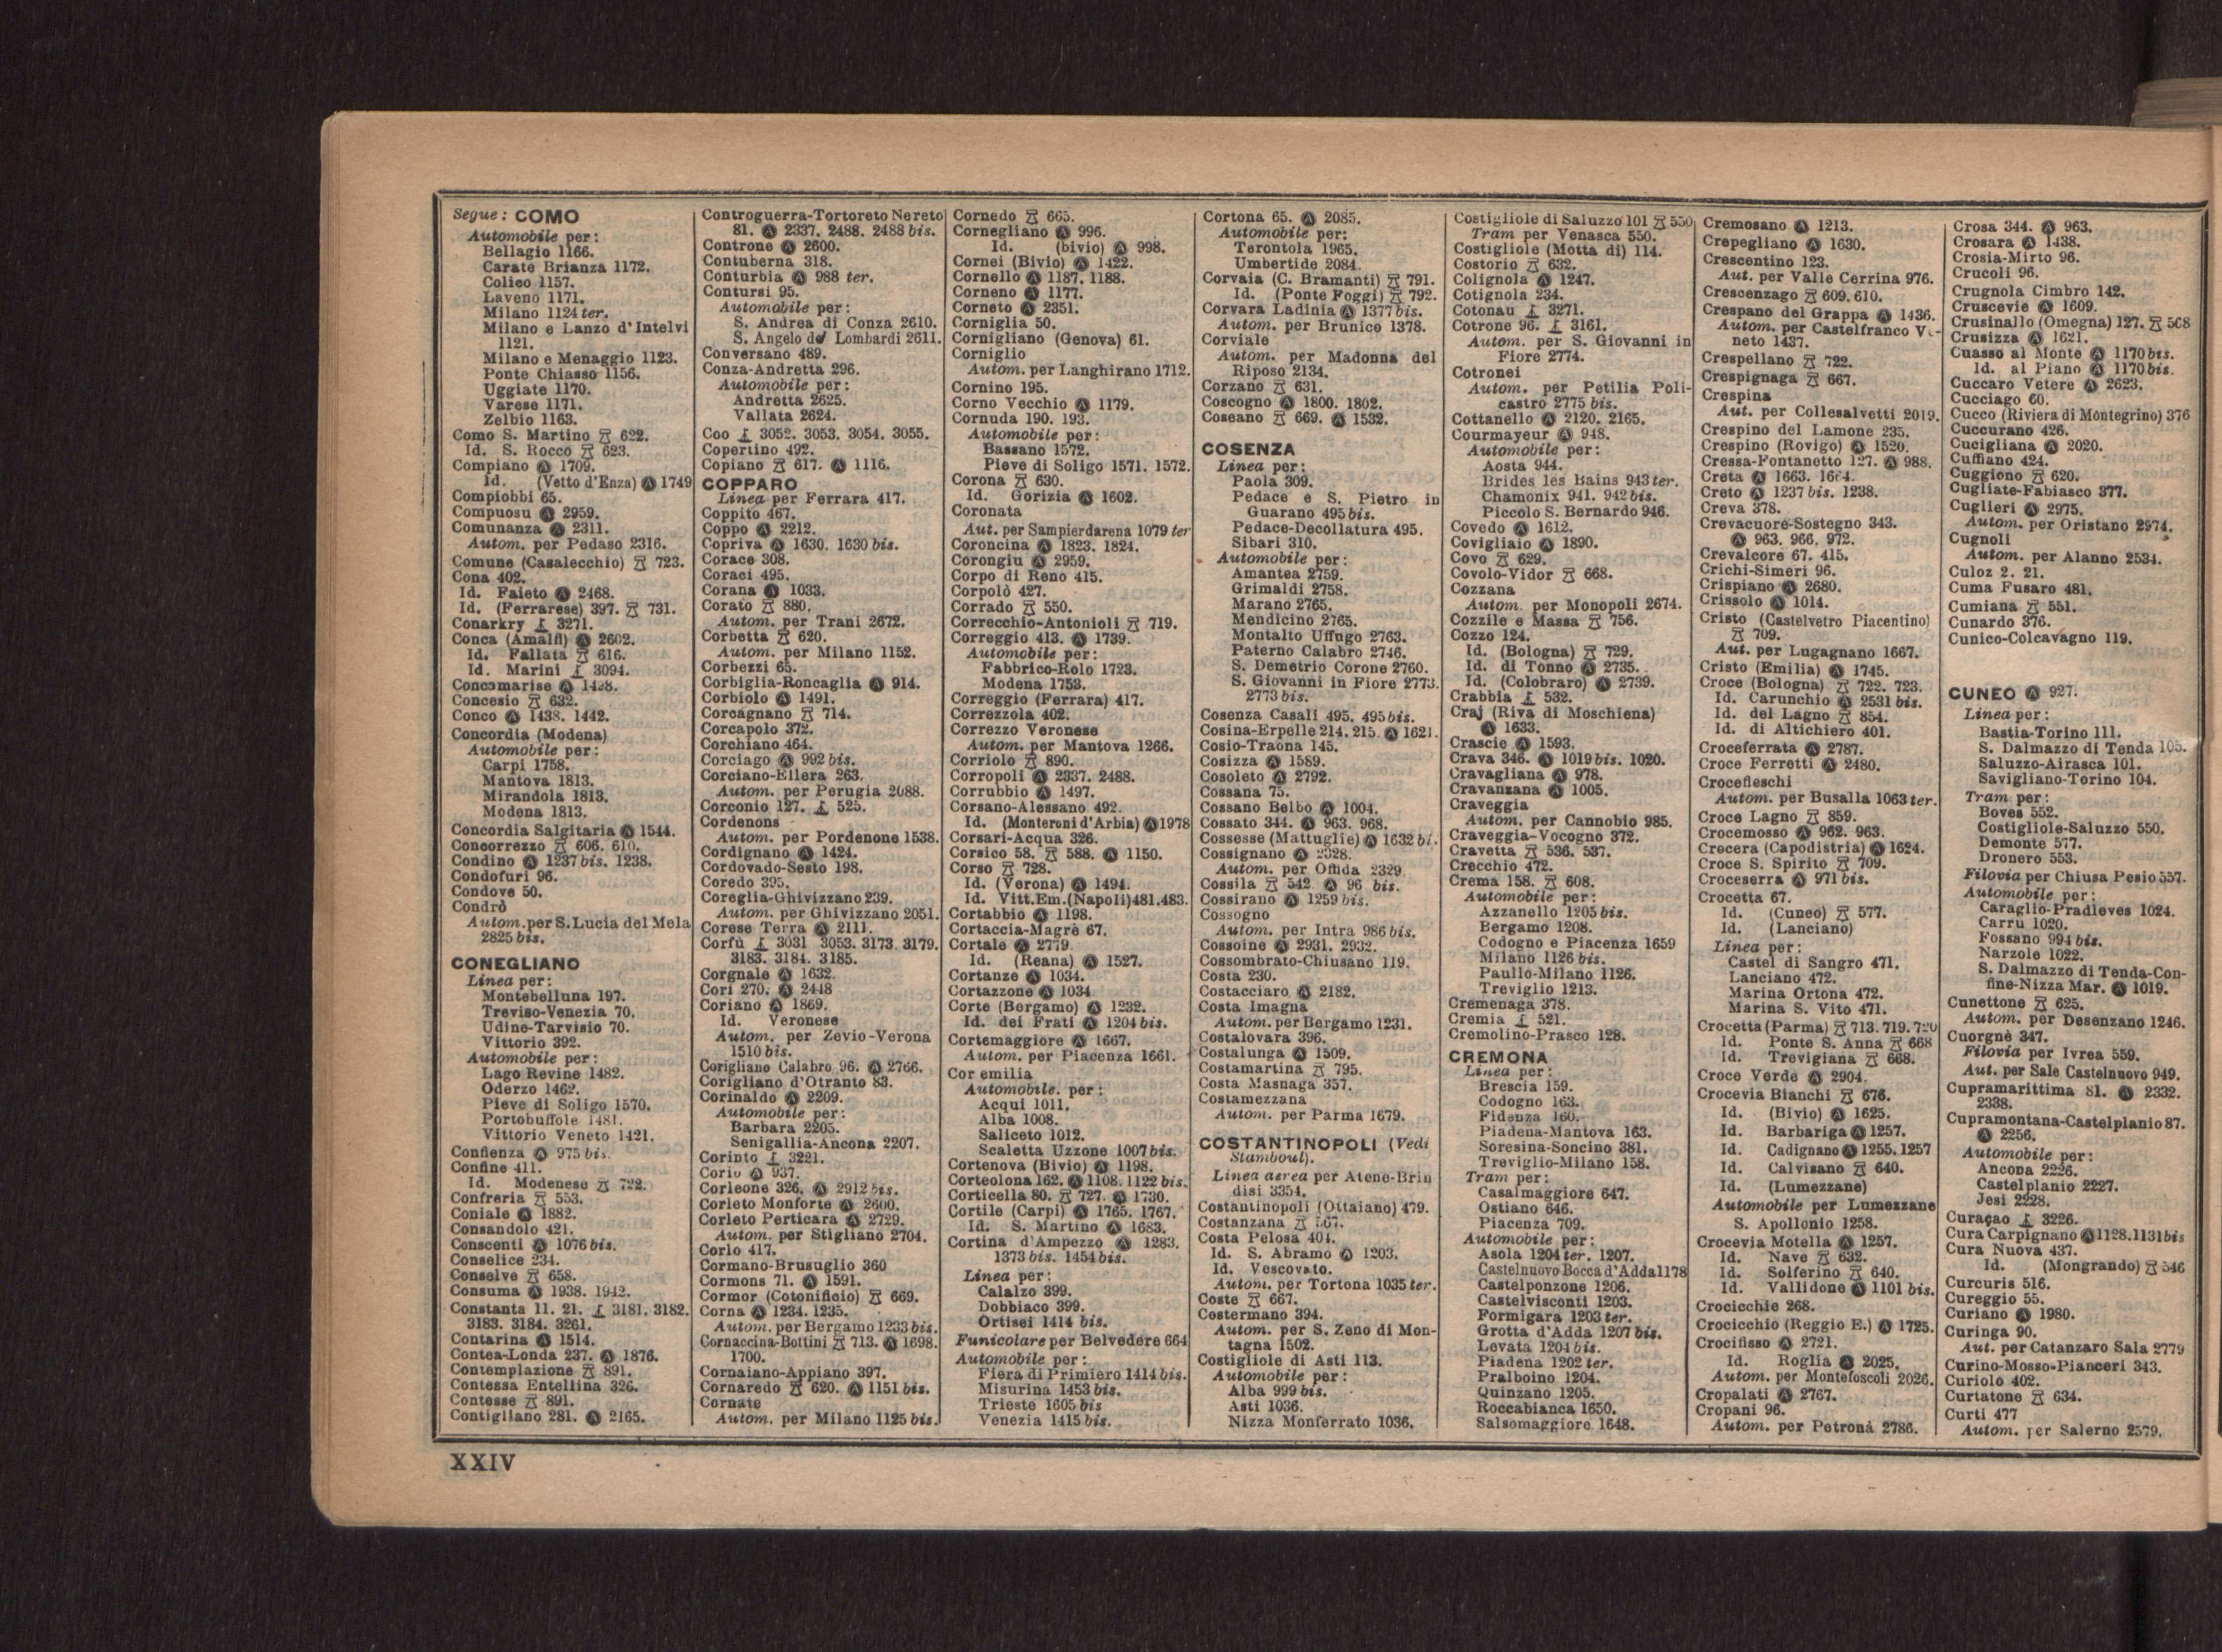 Segue: COMO
Automobile per:
Bellagio 1166.
Carate Brianza 1172.
Colico 1157.
Laveno 1171.
Milano 1124 ter.
Milano e Lanzo d'Intelvi
1121.
Milano e Menaggio 1123.
Ponte Chiasso 1156.
Uggiate 1170.
Varese 1171.
Zelbio 1163.
Como S. Martino 622.
Id. S. Rocco 623.
Compiano Ⓐ 1709.
Id. (Vetto d'Enza) Ⓐ 1749
Compiobbi 65.
Compuosu Ⓐ 2959.
Comunanza Ⓐ 2311.
Autom. per Pedaso 2316.
Comune (Casalecchio) 723.
Cona 402.
Id. Faieto Ⓐ 2468.
Id. (Ferrarese) 397. 731.
Conarkry 3271.
Conca (Amalfi) Ⓐ 2602.
Id. Fallata 616.
Id. Marini 3094.
Concamarise Ⓐ 1498.
Concesio 632.
Conco Ⓐ 1438. 1442.
Concordia (Modena)
Automobile per:
Carpi 1758.
Mantova 1813.
Mirandola 1813.
Modena 1813.
Concordia Salgitaria Ⓐ 1544.
Concorrezzo 606. 610.
Condino Ⓐ 1237 bis. 1238.
Condofuri 96.
Condove 50.
Condrò
Autom. per S. Lucia del Mela
2825 bis.
CONEGLIANO
Linea per:
Montebelluna 197.
Treviso-Venezia 70.
Udine-Tarvisio 70.
Vittorio 392.
Automobile per:
Lago Revine 1482.
Oderzo 1462.
Pieve di Soligo 1570.
Portobuffole 1481.
Vittorio Veneto 1421.
Confienza Ⓐ 975 bis.
Confine 411.
Id. Modenese 722.
Confreria 553.
Coniale Ⓐ 1882.
Consandolo 421.
Conscenti Ⓐ 1076 bis.
Conselice 234.
Conselve 658.
Consuma Ⓐ 1938. 1942.
Constanta 11. 21. 3181. 3182.
3183. 3184. 3261.
Contarina Ⓐ 1514.
Contea-Londa 237. Ⓐ 1876.
Contemplazione 891.
Contessa Entellina 326.
Contesse 891.
Contigliano 281. Ⓐ 2165.
Controguerra-Tortoreto Nereto
81. Ⓐ 2337. 2488. 2488 bis.
Controne Ⓐ 2600.
Contuberna 318.
Conturbia Ⓐ 988 ter.
Contursi 95.
Automobile per:
S. Andrea di Conza 2610.
S. Angelo de' Lombardi 2611.
Conversano 489.
Conza-Andretta 296.
Automobile per:
Andretta 2625.
Vallata 2624.
Coo 3052. 3053. 3054. 3055.
Copertino 492.
Copiano 617. Ⓐ 1116.
COPPARO
Linea per Ferrara 417.
Coppito 467.
Coppo Ⓐ 2212.
Copriva Ⓐ 1630. 1630 bis.
Corace 308.
Coraci 495.
Corana Ⓐ 1033.
Corato 880.
Autom. per Trani 2672.
Corbetta 620.
Autom. per Milano 1152.
Corbezzi 65.
Corbiglia-Roncaglia Ⓐ 914.
Corbiolo Ⓐ 1491.
Corcagnano 714.
Corcapolo 372.
Corchiano 464.
Corciago Ⓐ 992 bis.
Corciano-Ellera 263.
Autom. per Perugia 2088.
Corconio 127. 525.
Cordenons
Autom. per Pordenone 1538.
Cordignano Ⓐ 1424.
Cordovado-Sesto 198.
Coredo 395.
Coreglia-Ghivizzano 239.
Autom. per Ghivizzano 2051.
Corese Terra Ⓐ 2111.
Corfù 3031 3053. 3173. 3179.
3183. 3184. 3185.
Corgnale Ⓐ 1632.
Cori 270. Ⓐ 2448
Coriano Ⓐ 1869.
Id. Veronese
Autom. per Zevio-Verona
1510 bis.
Corigliano Calabro 96. Ⓐ 2766.
Corigliano d'Otranto 83.
Corinaldo Ⓐ 2209.
Automobile per:
Barbara 2205.
Senigallia-Ancona 2207.
Corinto 3221.
Corio Ⓐ 937.
Corleone 326. Ⓐ 2912 bis.
Corleto Monforte Ⓐ 2600.
Corleto Perticara Ⓐ 2729.
Autom. per Stigliano 2704.
Corlo 417.
Cormano-Brusuglio 360
Cormons 71. Ⓐ 1591.
Cormor (Cotonificio) 669.
Corna Ⓐ 1234. 1235.
Autom. per Bergamo 1233 bis.
Cornaccina-Bottini 713. Ⓐ 1698.
1700.
Cornaiano-Appiano 397.
Cornaredo 620. Ⓐ 1151 bis.
Cornate
Autom. per Milano 1125 bis.
Cornedo 665.
Cornegliano Ⓐ 996.
Id. (bivio) Ⓐ 998.
Cornei (Bivio) Ⓐ 1422.
Cornello Ⓐ 1187. 1188.
Corneno Ⓐ 1177.
Corneto Ⓐ 2351.
Corniglia 50.
Cornigliano (Genova) 61.
Corniglio
Autom. per Langhirano 1712.
Cornino 195.
Corno Vecchio Ⓐ 1179.
Cornuda 190. 193.
Automobile per:
Bassano 1572.
Pieve di Soligo 1571. 1572.
Corona 630.
Id. Gorizia Ⓐ 1602.
Coronata
Aut. per Sampierdarena 1079 ter
Coroncina Ⓐ 1823. 1824.
Corongiu Ⓐ 2959.
Corpo di Reno 415.
Corpolò 427.
Corrado 550.
Correcchio-Antonioli 719.
Correggio 413. Ⓐ 1739.
Automobile per:
Fabbrico-Rolo 1723.
Modena 1753.
Correggio (Ferrara) 417.
Correzzola 402.
Correzzo Veronese
Autom. per Mantova 1266.
Corriolo 890.
Corropoli Ⓐ 2337. 2488.
Corrubbio Ⓐ 1497.
Corsano-Alessano 492.
Id. (Monteroni d'Arbia) Ⓐ 1978
Corsari-Acqua 326.
Corsico 58. 588. Ⓐ 1150.
Corso 728.
Id. (Verona) Ⓐ 1494.
Id. Vitt.Em.(Napoli)481.483.
Cortabbio Ⓐ 1198.
Cortaccia-Magrè 67.
Cortale Ⓐ 2779.
Id. (Reana) Ⓐ 1527.
Cortanze Ⓐ 1034.
Cortazzone Ⓐ 1034
Corte (Bergamo) Ⓐ 1232.
Id. dei Frati Ⓐ 1204 bis.
Cortemaggiore Ⓐ 1667.
Autom. per Piacenza 1661.
Cor emilia
Automobile. per:
Acqui 1011.
Alba 1008.
Saliceto 1012.
Scaletta Uzzone 1007 bis.
Cortenova (Bivio) Ⓐ 1198.
Corteolona 162. Ⓐ 1108. 1122 bis.
Corticella 80. 727. Ⓐ 1730.
Cortile (Carpi) Ⓐ 1765. 1767.
Id. S. Martino Ⓐ 1683.
Cortina d'Ampezzo Ⓐ 1283.
1373 bis. 1454 bis.
Linea per:
Calalzo 399.
Dobbiaco 399.
Ortisei 1414 bis.
Funicolare per Belvedere 664
Automobile per:
Fiera di Primiero 1414 bis.
Misurina 1453 bis.
Trieste 1605 bis
Venezia 1415 bis.
Cortona 65. Ⓐ 2085.
Automobile per:
Terontola 1965.
Umbertide 2084.
Corvaia (C. Bramanti) 791.
Id. (Ponte Foggi) 792.
Corvara Ladinia Ⓐ 1377 bis.
Autom. per Brunico 1378.
Corviale
Autom. per Madonna del
Riposo 2134.
Corzano 631.
Coscogno Ⓐ 1800. 1802.
Coseano 669. Ⓐ 1532.
COSENZA
Linea per:
Paola 309.
Pedace e S. Pietro in
Guarano 495 bis.
Pedace-Decollatura 495.
Sibari 310.
Automobile per:
Amantea 2759.
Grimaldi 2758.
Marano 2765.
Mendicino 2765.
Montalto Uffugo 2763.
Paterno Calabro 2746.
S. Demetrio Corone 2760.
S. Giovanni in Fiore 2773.
2773 bis.
Cosenza Casali 495. 495 bis.
Cosina-Erpelle 214. 215. Ⓐ 1621.
Cosio-Traona 145.
Cosizza Ⓐ 1589.
Cosoleto Ⓐ 2792.
Cossana 75.
Cossano Belbo Ⓐ 1004.
Cossato 344. Ⓐ 963. 968.
Cossesse (Mattuglie) Ⓐ 1632 bi.
Cossignano Ⓐ 2328.
Autom. per Offida 2329
Cossila 542. Ⓐ 96 bis.
Cossirano Ⓐ 1259 bis.
Cossogno
Autom. per Intra 986 bis.
Cossoine Ⓐ 2931. 2932.
Cossombrato-Chiusano 119.
Costa 230.
Costacciaro Ⓐ 2182.
Costa Imagna
Autom. per Bergamo 1231.
Costalovara 396.
Costalunga Ⓐ 1509.
Costamartina 795.
Costa Masnaga 357.
Costamezzana
Autom. per Parma 1679.
COSTANTINOPOLI (Vedi
Stamboul).
Linea aerea per Atene-Brin
disi 3354.
Costantinopoli (Ottaiano) 479.
Costanzana 567.
Costa Pelosa 401.
Id. S. Abramo Ⓐ 1203.
Id. Vescovato.
Autom. per Tortona 1035 ter.
Coste 667.
Costermano 394.
Autom. per S. Zeno di Mon-
tagna 1502.
Costigliole di Asti 113.
Automobile per:
Alba 999 bis.
Asti 1036.
Nizza Monferrato 1036.
Costigliole di Saluzzo 101 550
Tram per Venasca 550.
Costigliole (Motta di) 114.
Costorio 632.
Cotignola Ⓐ 1247.
Cotignola 234.
Cotonau 3271.
Cotrone 96. 3161.
Autom. per S. Giovanni in
Fiore 2774.
Cotronei
Autom. per Petilia Poli-
castro 2775 bis.
Cottanello Ⓐ 2120. 2165.
Courmayeur Ⓐ 948.
Automobile per:
Aosta 944.
Brides les Bains 943 ter.
Chamonix 941. 942 bis.
Piccolo S. Bernardo 946.
Covedo Ⓐ 1612.
Covigliaio Ⓐ 1890.
Covo 629.
Covolo-Vidor 668.
Cozzana
Autom. per Monopoli 2674.
Cozzile e Massa 756.
Cozzo 124.
Id. (Bologna) 729.
Id. di Tonno Ⓐ 2735.
Id. (Colobraro) Ⓐ 2739.
Crabbia 532.
Craj (Riva di Moschiena)
Ⓐ 1633.
Crascie Ⓐ 1593.
Crava 346. Ⓐ 1019 bis. 1020.
Cravagliana Ⓐ 978.
Cravanzana Ⓐ 1005.
Craveggia
Autom. per Cannobio 985.
Craveggia-Vocogno 372.
Cravetta 536. 537.
Crecchio 472.
Crema 158. 608.
Automobile per:
Azzanello 1205 bis.
Bergamo 1208.
Codogno e Piacenza 1659
Milano 1126 bis.
Paullo-Milano 1126.
Treviglio 1213.
Cremenaga 378.
Cremia 521.
Cremolino-Prasco 128.
CREMONA
Linea per:
Brescia 159.
Codogno 163.
Fidenza 160.
Piadena-Mantova 163.
Soresina-Soncino 381.
Treviglio-Milano 158.
Tram per:
Casalmaggiore 647.
Ostiano 646.
Piacenza 709.
Automobile per:
Asola 1204 ter. 1207.
Castelnuovo Bocca d'Adda 1178
Castelponzone 1206.
Castelvisconti 1203.
Formigara 1203 ter.
Grotta d'Adda 1207 bis.
Levata 1204 bis.
Piadena 1202 ter.
Pralboino 1204.
Quinzano 1205.
Roccabianca 1650.
Salsomaggiore 1648.
Cremosano Ⓐ 1213.
Crepegliano Ⓐ 1630.
Crescentino 123.
Aut. per Valle Cerrina 976.
Crescenzago 609. 610.
Crespano del Grappa Ⓐ 1436.
Autom. per Castelfranco Ve-
neto 1437.
Crespellano 722.
Crespignaga 667.
Crespina
Aut. per Collesalvetti 2019.
Crespino del Lamone 235.
Crespino (Rovigo) Ⓐ 1520.
Cressa-Fontanetto 127. Ⓐ 988.
Creta Ⓐ 1663. 1664.
Creto Ⓐ 1237 bis. 1238.
Creva 378.
Crevacuore-Sostegno 343.
Ⓐ 963. 966. 972.
Crevalcore 67. 415.
Crichi-Simeri 96.
Crispiano Ⓐ 2680.
Crissolo Ⓐ 1014.
Cristo (Castelvetro Piacentino)
709.
Aut. per Lugagnano 1667.
Cristo (Emilia) Ⓐ 1745.
Croce (Bologna) 722. 723.
Id. Carunchio Ⓐ 2531 bis.
Id. del Lagno 854.
Id. di Altichiero 401.
Croceferrata Ⓐ 2787.
Croce Ferretti Ⓐ 2480.
Crocefieschi
Autom. per Busalla 1063 ter.
Croce Lagno 859.
Crocemosso Ⓐ 962. 963.
Crocera (Capodistria) Ⓐ 1624.
Croce S. Spirito 709.
Croceserra Ⓐ 971 bis.
Crocetta 67.
Id. (Cuneo) 577.
Id. (Lanciano)
Linea per:
Castel di Sangro 471.
Lanciano 472.
Marina Ortona 472.
Marina S. Vito 471.
Crocetta (Parma) 713. 719. 720
Id. Ponte S. Anna 668
Id. Trevigiana 668.
Croce Verde Ⓐ 2904.
Crocevia Bianchi 676.
Id. (Bivio) Ⓐ 1625.
Id. Barbariga Ⓐ 1257.
Id. Cadignano Ⓐ 1255. 1257
Id. Calvisano 640.
Id. (Lumezzane)
Automobile per Lumezzane
S. Apollonio 1258.
Crocevia Motella Ⓐ 1257.
Id. Nave 632.
Id. Solferino 640.
Id. Vallidone Ⓐ 1101 bis.
Crocicchie 268.
Crocicchio (Reggio E.) Ⓐ 1725.
Crocifisso Ⓐ 2721.
Id. Roglia Ⓐ 2025.
Autom. per Montefoscoli 2026.
Cropalati Ⓐ 2767.
Cropani 96.
Autom. per Petronà 2786.
Crosa 344. Ⓐ 963.
Crosara Ⓐ 1438.
Crosia-Mirto 96.
Crucoli 96.
Crugnola Cimbro 142.
Cruscevie Ⓐ 1609.
Crusinallo (Omegna) 127. 508
Crusizza Ⓐ 1621.
Cuasso al Monte Ⓐ 1170 bis.
Id. al Piano Ⓐ 1170 bis.
Cuccaro Vetere Ⓐ 2623.
Cucciago 60.
Cucco (Riviera di Montegrino) 376
Cuccurano 426.
Cucigliana Ⓐ 2020.
Cuffiano 424.
Cuggiono 620.
Cugliate-Fabiasco 377.
Cuglieri Ⓐ 2975.
Autom. per Oristano 2974.
Cugnoli
Autom. per Alanno 2534.
Culoz 2. 21.
Cuma Fusaro 481.
Cumiana 551.
Cunardo 376.
Cunico-Colcavagno 119.
CUNEO Ⓐ 927.
Linea per:
Bastia-Torino 111.
S. Dalmazzo di Tenda 105.
Saluzzo-Airasca 101.
Savigliano-Torino 104.
Tram per:
Boves 552.
Costigliole-Saluzzo 550.
Demonte 577.
Dronero 553.
Filovia per Chiusa Pesio 557.
Automobile per:
Caraglio-Pradleves 1024.
Carrù 1020.
Fossano 994 bis.
Narzole 1022.
S. Dalmazzo di Tenda-Con-
fine-Nizza Mar. Ⓐ 1019.
Cunettone 625.
Autom. per Desenzano 1246.
Cuorgnè 347.
Filovia per Ivrea 559.
Aut. per Sale Castelnuovo 949.
Cupramarittima 81. Ⓐ 2332.
2338.
Cupramontana-Castelplanio 87.
Ⓐ 2256.
Automobile per:
Ancona 2226.
Castelplanio 2227.
Jesi 2228.
Curaçao 3226.
Cura Carpignano Ⓐ 1128. 1131 bis
Cura Nuova 437.
Id. (Mongrando) 546
Curcuris 516.
Cureggio 55.
Curiano Ⓐ 1980.
Curinga 90.
Aut. per Catanzaro Sala 2779
Curino-Mosso-Pianceri 343.
Curiolo 402.
Curtatone 634.
Curti 477
Autom. per Salerno 2579.
XXIV